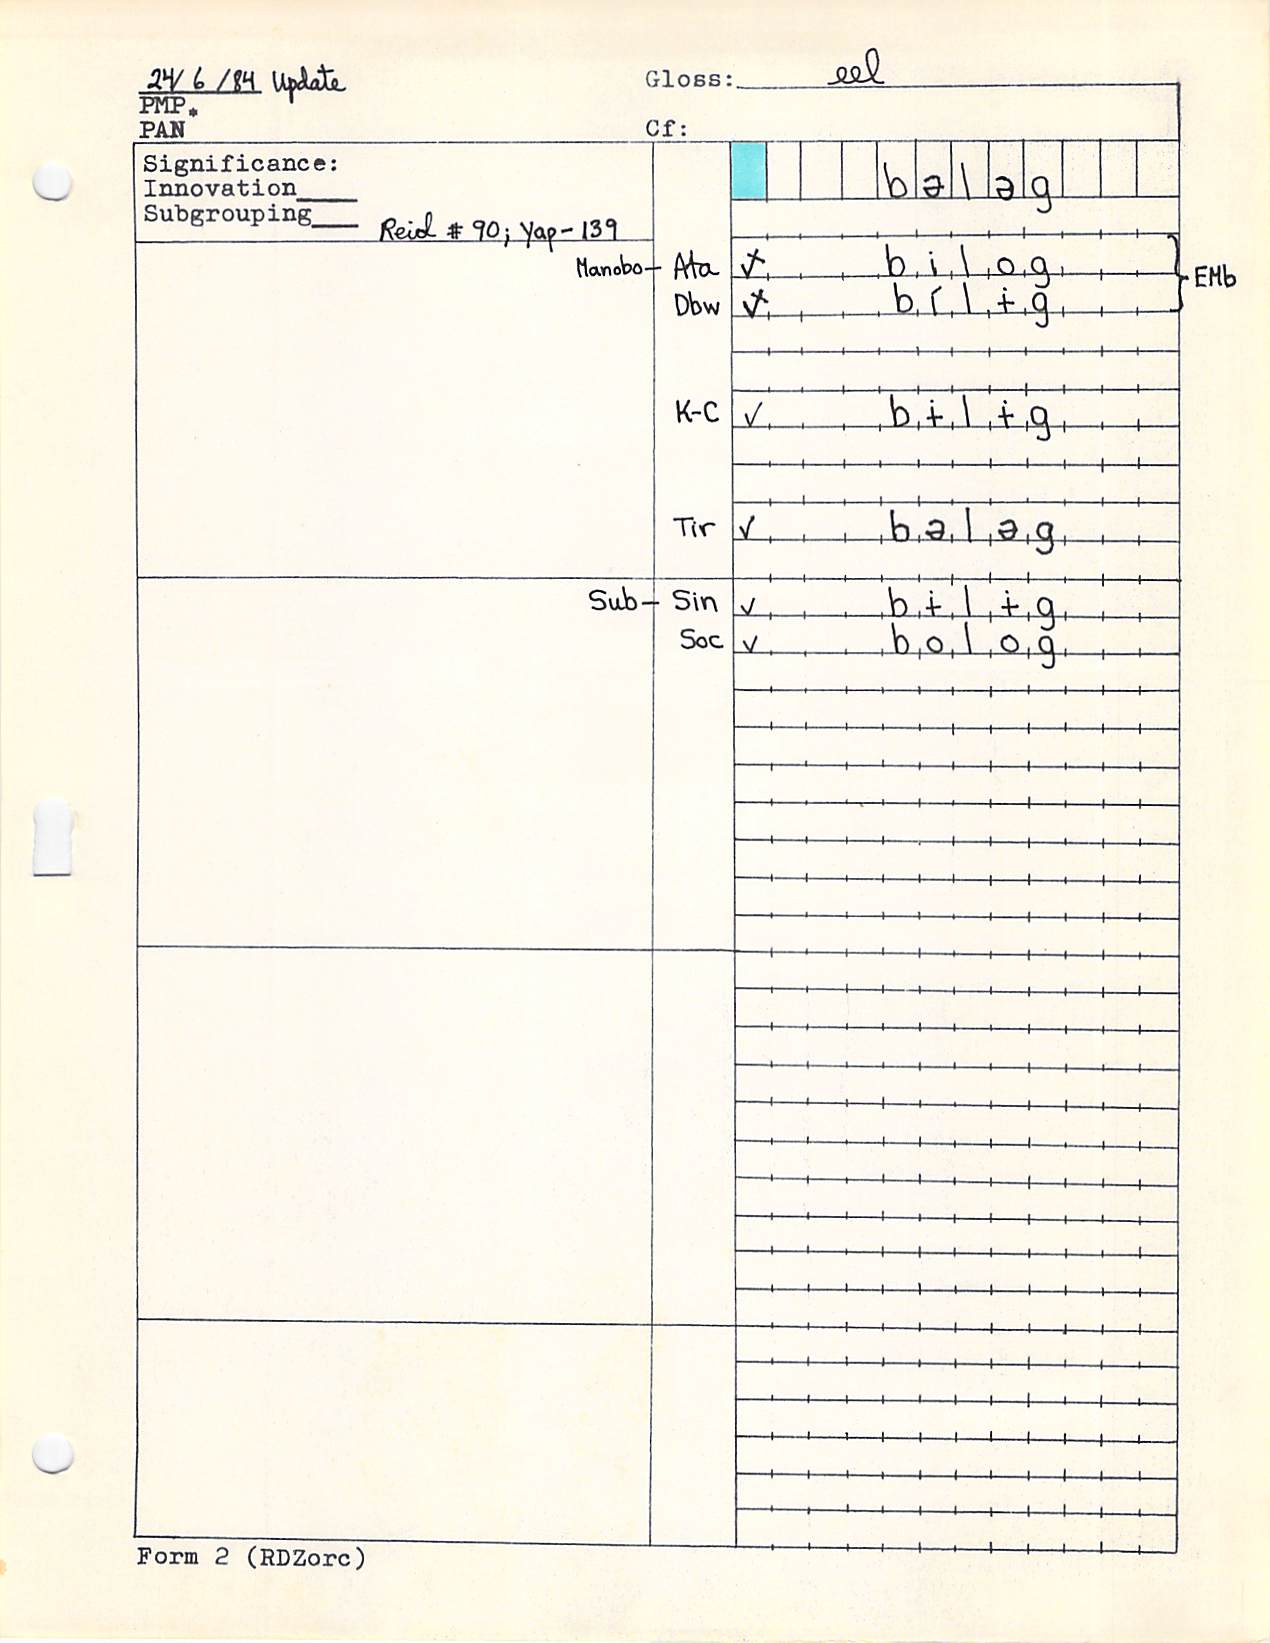 24/6/84 Update
Gloss: eel
PMP*
PAN
Cf:
Significance:
Innovation____
Subgrouping___
Reid # 90; Yap-139
bələg
Manobo- Ata ✓x bilog
EMb
Dbw ✓x bílɨg
K-C ✓ bɨlɨg
Tir ✓ bələg
Sub- Sin ✓ bɨlɨg
Soc ✓ bolog
Form 2 (RDZorc)